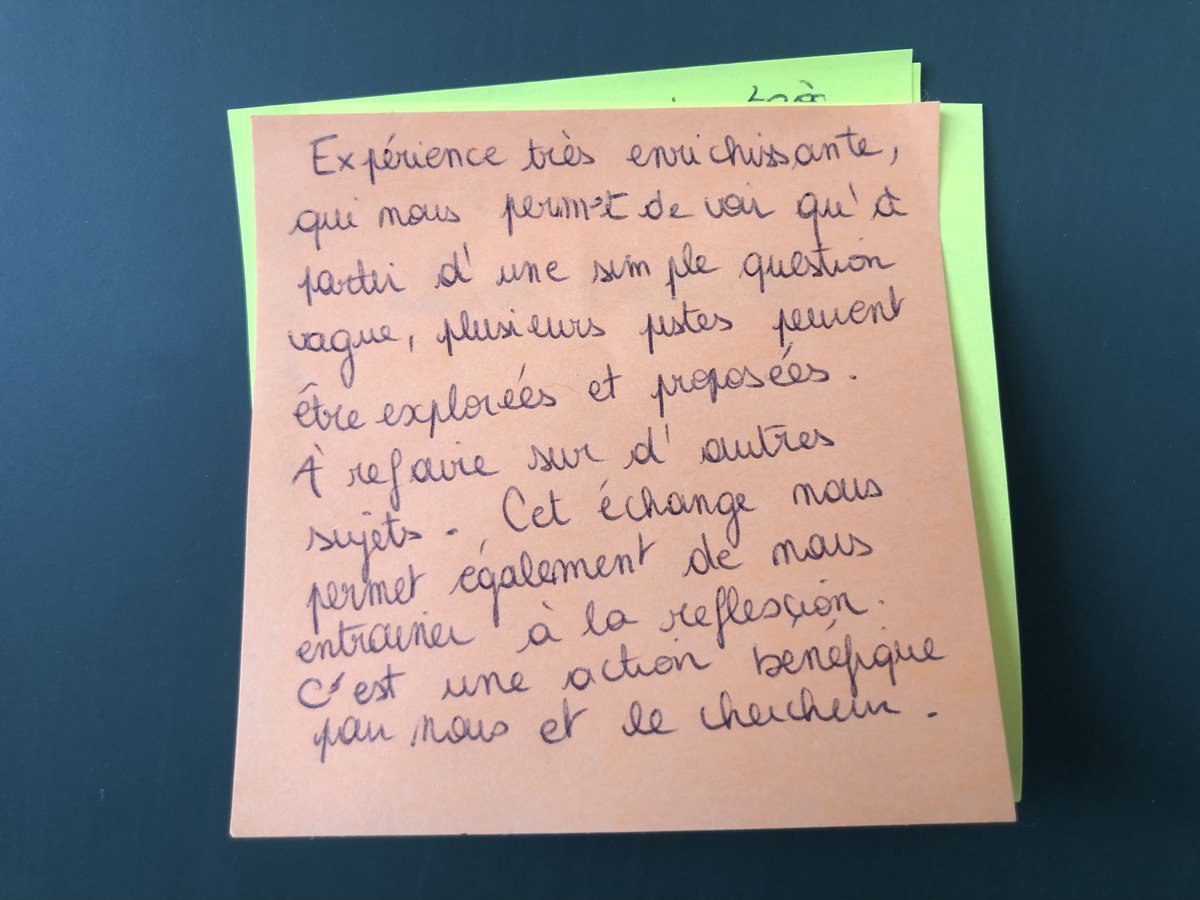 très
Expérience très enrichissante,
qui nous permet de voir qu'à
partir d'une simple question
vague, plusieurs pistes peuvent
être explorées et proposées.
À refaire sur d'autres
sujets. Cet échange nous
permet également de nous
entrainer à la reflexçion.
C'est une action bénéfique
pour nous et le chercheur.